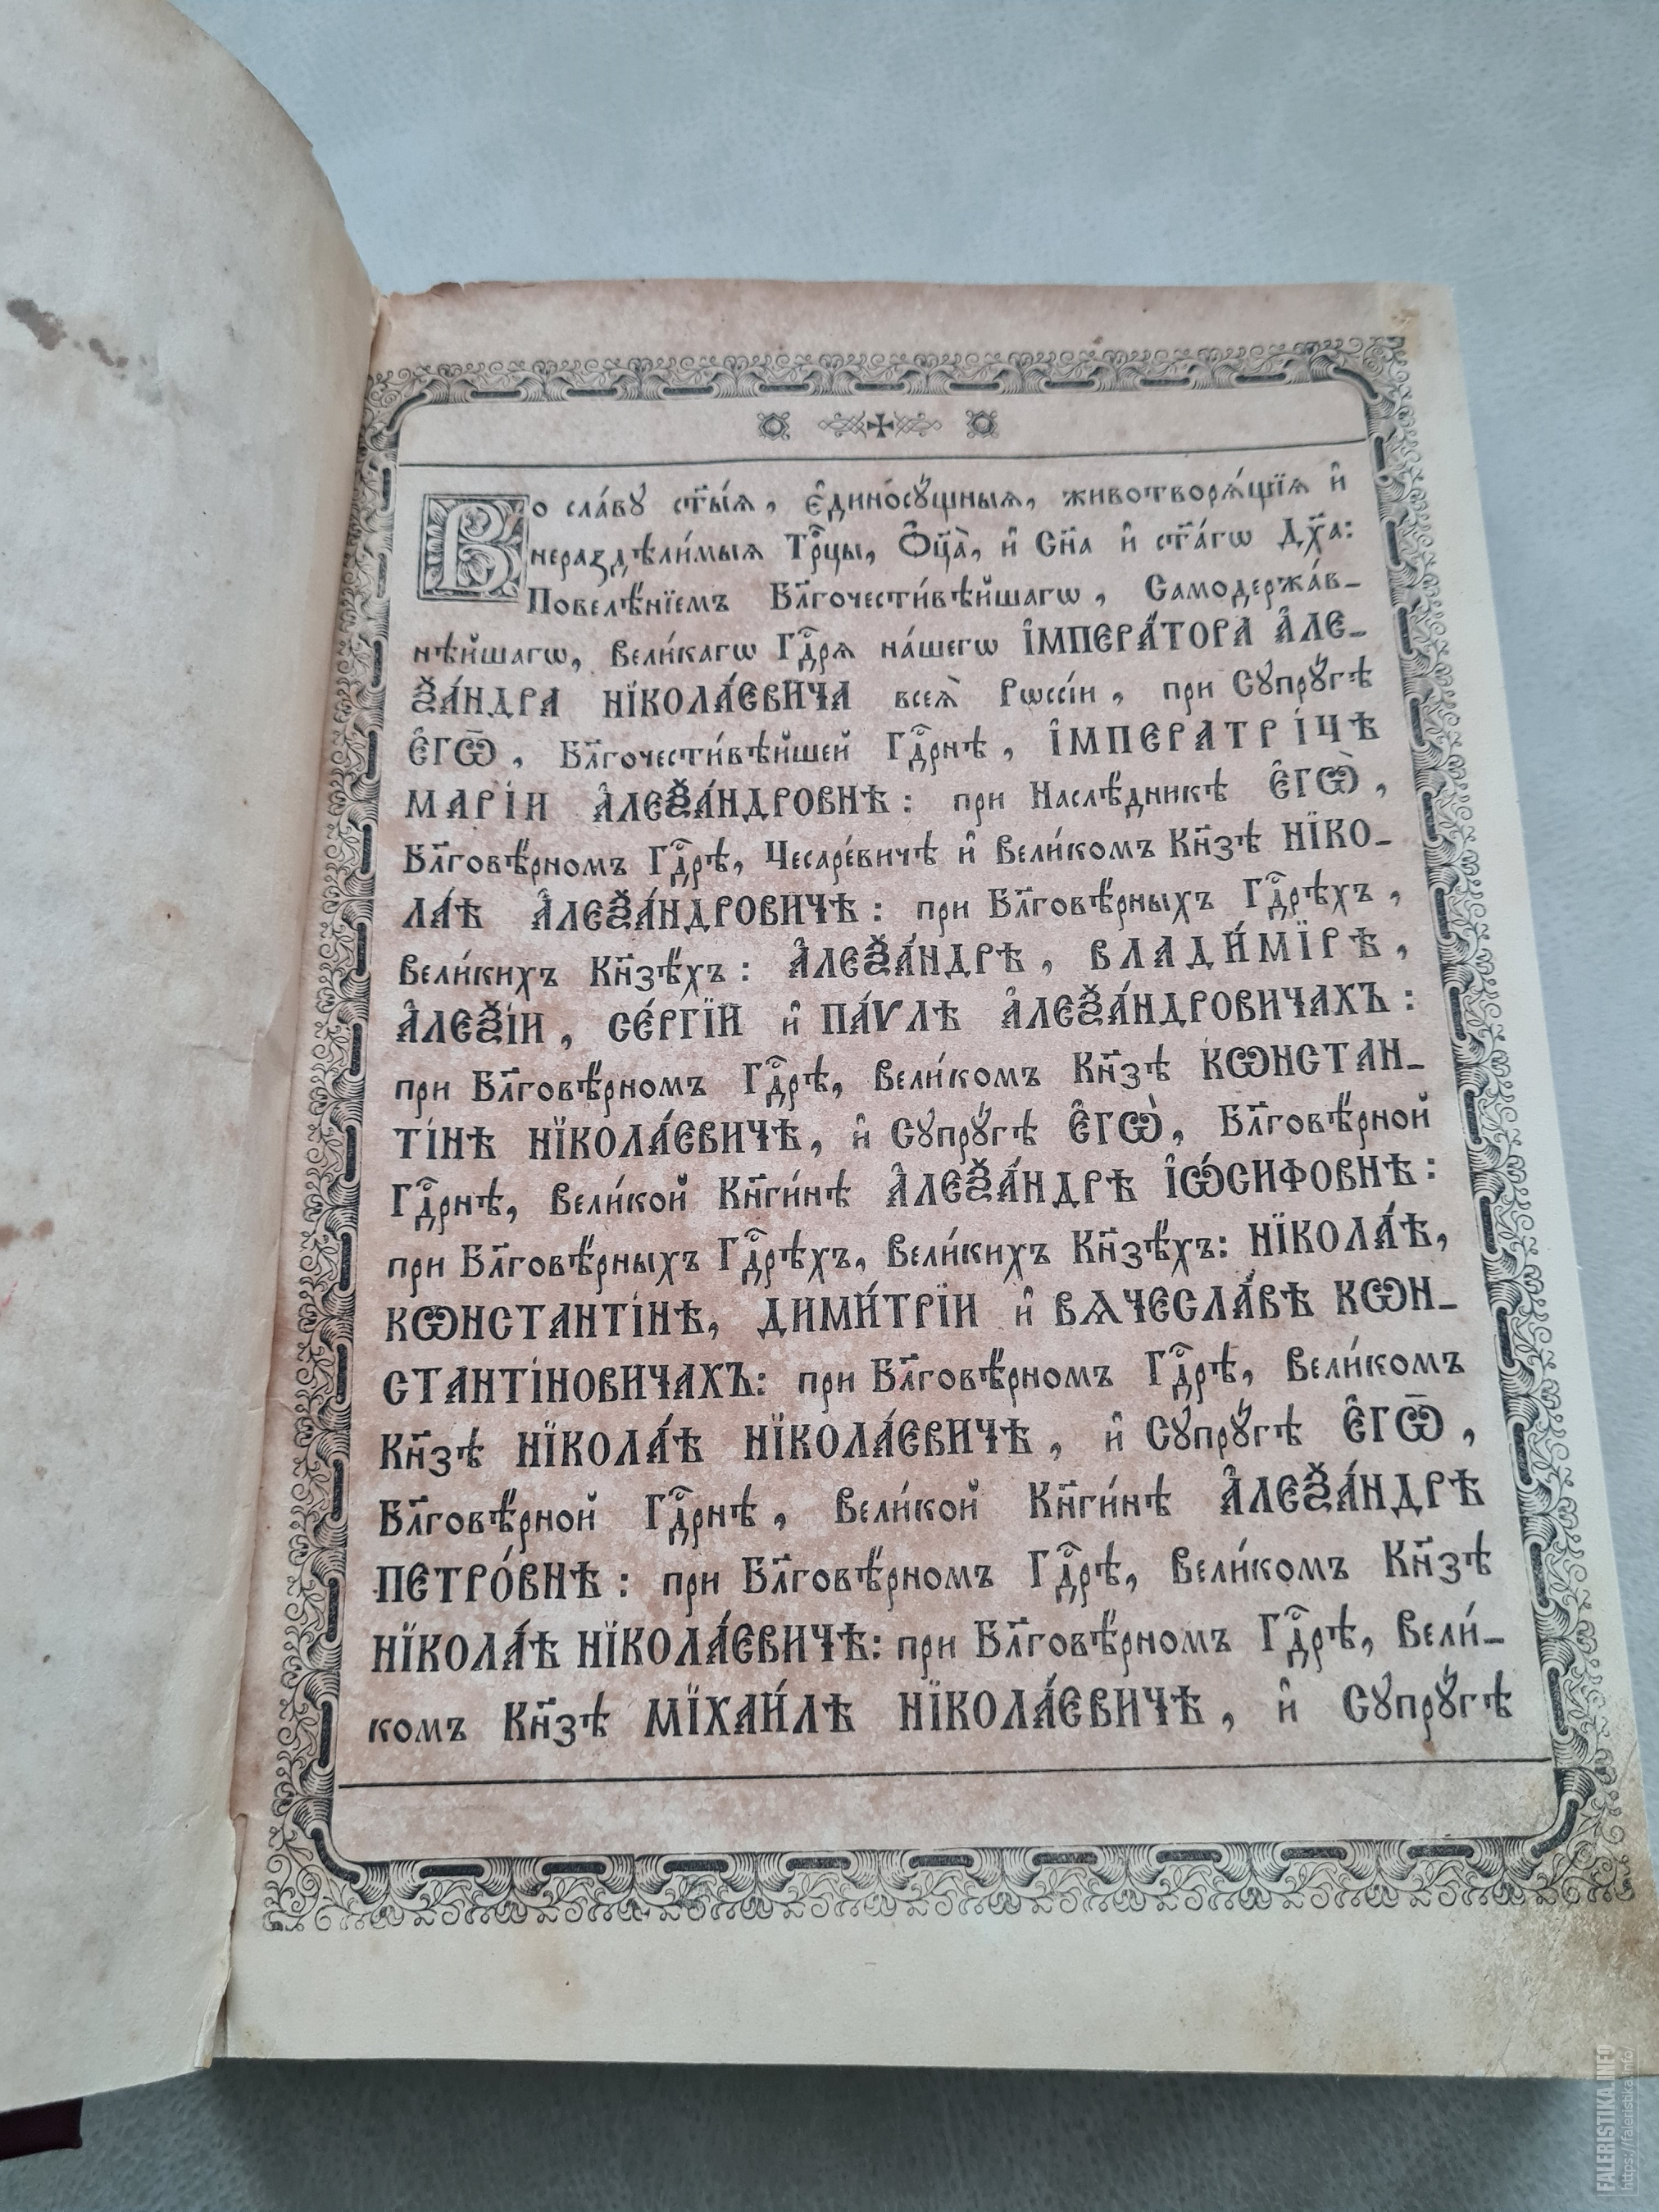 Во сла́вꙋ ст҃ы́ѧ, є҆диносꙋ́щныѧ, животворѧ́щїѧ и҆
нераздѣли́мыѧ Трⷪ҇цы, Ѻ҆ц҃а̀, и҆ Сн҃а и҆ ст҃а́гѡ Дх҃а:
Повелѣ́нїемъ Бл҃гочести́вѣйшагѡ, Самодержа́в-
нѣйшагѡ, вели́кагѡ Гдⷭ҇рѧ на́шегѡ І҆МПЕРА́ТОРА А҆ЛЕ-
Ѯ́АНДРА НЇКОЛА́ЕВИЧА всеѧ̀ Рѡссі́и, при Сꙋпрꙋ́гѣ
Є҆ГѠ̀, Бл҃гочести́вѣйшей Гдⷭ҇рнѣ, І҆МПЕРАТРІ́ЦѢ
МАРІ́И А҆ЛЕѮА́НДРОВНѢ: при Наслѣ́дникѣ Є҆ГѠ̀,
Бл҃говѣ́рномъ Гдⷭ҇рѣ, Цесаре́вичѣ и҆ Вели́комъ Кн҃зѣ НЇКО-
ЛА́Ѣ А҆ЛЕѮА́НДРОВИЧѢ: при Бл҃говѣ́рныхъ Гдⷭ҇рѣхъ,
Вели́кихъ Кн҃зѣ́хъ: А҆ЛЕѮА́НДРѢ, ВЛАДИ́МЇРѢ,
А҆ЛЕѮІ́И, СЕ́РГЇИ и҆ ПА́ѴЛѢ А҆ЛЕѮА́НДРОВИЧАХЪ:
при Бл҃говѣ́рномъ Гдⷭ҇рѣ, Вели́комъ Кн҃зѣ КѠНСТАН-
ТІ́НѢ НЇКОЛА́ЕВИЧѢ, и҆ Сꙋпрꙋ́гѣ Є҆ГѠ̀, Бл҃говѣ́рной
Гдⷭ҇рнѣ, Вели́кой Кн҃ги́нѣ А҆ЛЕѮА́НДРѢ І҆Ѡ́СИФОВНѢ:
при Бл҃говѣ́рныхъ Гдⷭ҇рѣхъ, Вели́кихъ Кн҃зѣ́хъ: НЇКОЛА́Ѣ,
КѠНСТАНТІ́НѢ, ДИМИ́ТРЇИ и҆ ВѦЧЕСЛА́ВѢ КѠН-
СТАНТІ́НОВИЧАХЪ: при Бл҃говѣ́рномъ Гдⷭ҇рѣ, Вели́комъ
Кн҃зѣ НЇКОЛА́Ѣ НЇКОЛА́ЕВИЧѢ, и҆ Сꙋпрꙋ́гѣ Є҆ГѠ̀,
Бл҃говѣ́рной Гдⷭ҇рнѣ, Вели́кой Кн҃ги́нѣ А҆ЛЕѮА́НДРѢ
ПЕТРО́ВНѢ: при Бл҃говѣ́рномъ Гдⷭ҇рѣ, Вели́комъ Кн҃зѣ
НЇКОЛА́Ѣ НЇКОЛА́ЕВИЧѢ: при Бл҃говѣ́рномъ Гдⷭ҇рѣ, Вели́-
комъ Кн҃зѣ МЇХАИ́ЛѢ НЇКОЛА́ЕВИЧѢ, и҆ Сꙋпрꙋ́гѣ
FALERISTIKA.INFO
https://faleristika.info/